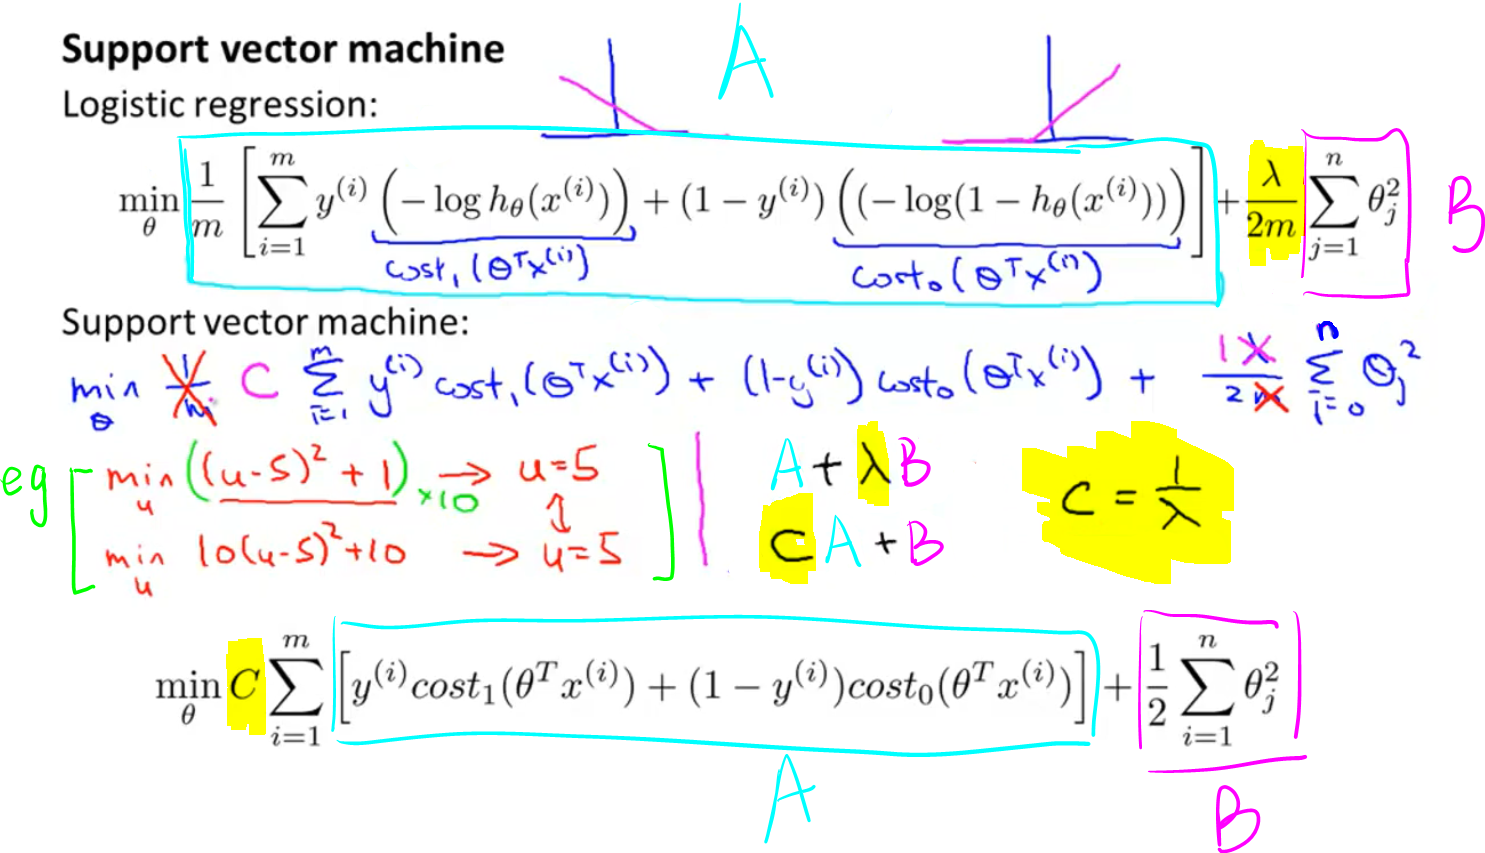 Support vector machine
A
Logistic regression:
min_θ 1/m [ ∑_{i=1}^{m} y^{(i)} (− log h_θ(x^{(i)})) + (1 − y^{(i)}) ((− log(1 − h_θ(x^{(i)}))) ] + λ/2m ∑_{j=1}^{n} θ_j^2 B
cost₁(θᵀx^{(i)}) cost₀(θᵀx^{(i)})
Support vector machine:
min_θ 1/m C ∑_{i=1}^{m} y^{(i)} cost₁(θᵀx^{(i)}) + (1-y^{(i)}) cost₀(θᵀx^{(i)}) + 1 λ/2m ∑_{i=0}^{n} θ_j^2
eg [ min_u ((u-5)² + 1) ×10 → u=5 ] | A + λB C = 1/λ
↕
min_u 10(u-5)²+10 → u=5 CA + B
min_θ C ∑_{i=1}^{m} [ y^{(i)} cost_1(θ^T x^{(i)}) + (1 − y^{(i)}) cost_0(θ^T x^{(i)}) ] + 1/2 ∑_{i=1}^{n} θ_j^2
A B